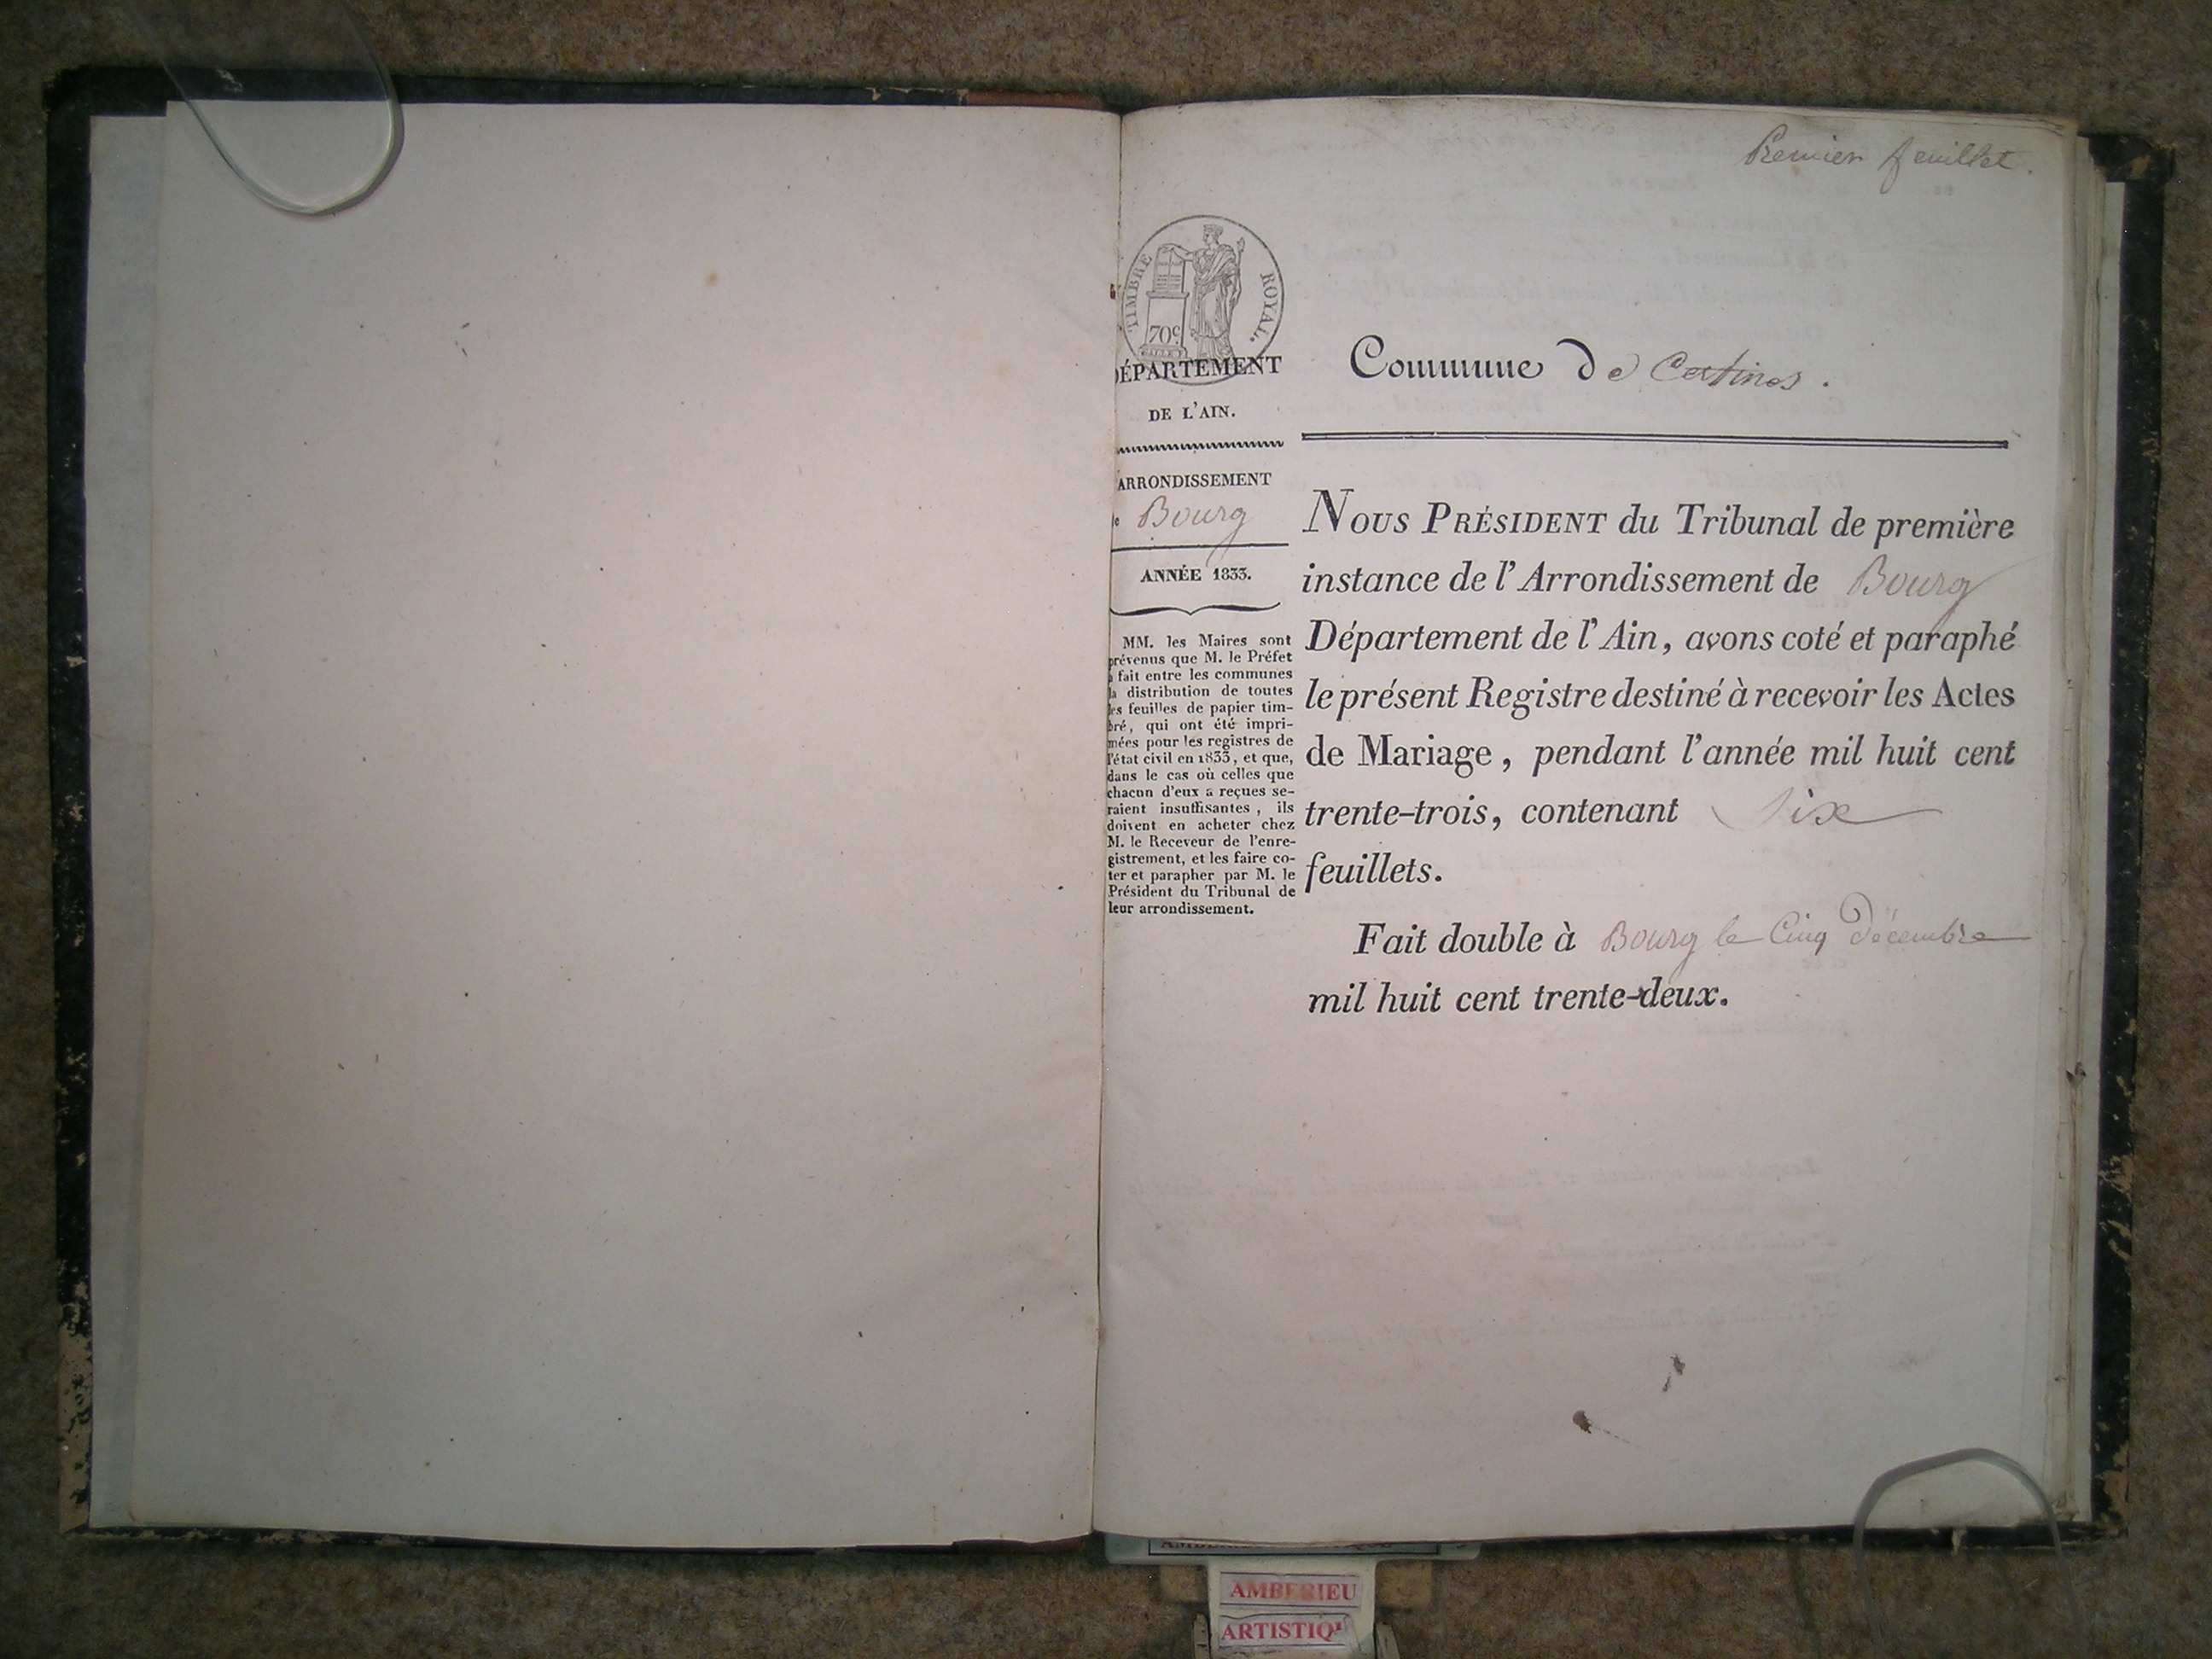 Premier feuillet.
TIMBRE ROYAL.
70c
DÉPARTEMENT
DE L'AIN.
ARRONDISSEMENT
de Bourg
ANNÉE 1833.
MM. les Maires sont
prévenus que M. le Préfet
a fait entre les communes
la distribution de toutes
les feuilles de papier tim-
bré, qui ont été impri-
mées pour les registres de
l'état civil en 1833, et que,
dans le cas où celles que
chacun d'eux a reçues se-
raient insuffisantes, ils
doivent en acheter chez
M. le Receveur de l'enre-
gistrement, et les faire co-
ter et parapher par M. le
Président du Tribunal de
leur arrondissement.
Commune de Certines.
NOUS PRÉSIDENT du Tribunal de première
instance de l'Arrondissement de Bourg
Département de l'Ain, avons coté et paraphé
le présent Registre destiné à recevoir les Actes
de Mariage, pendant l'année mil huit cent
trente-trois, contenant Six
feuillets.
Fait double à Bourg le Cinq décembre
mil huit cent trente-deux.
AMBERIEU
ARTISTIQU